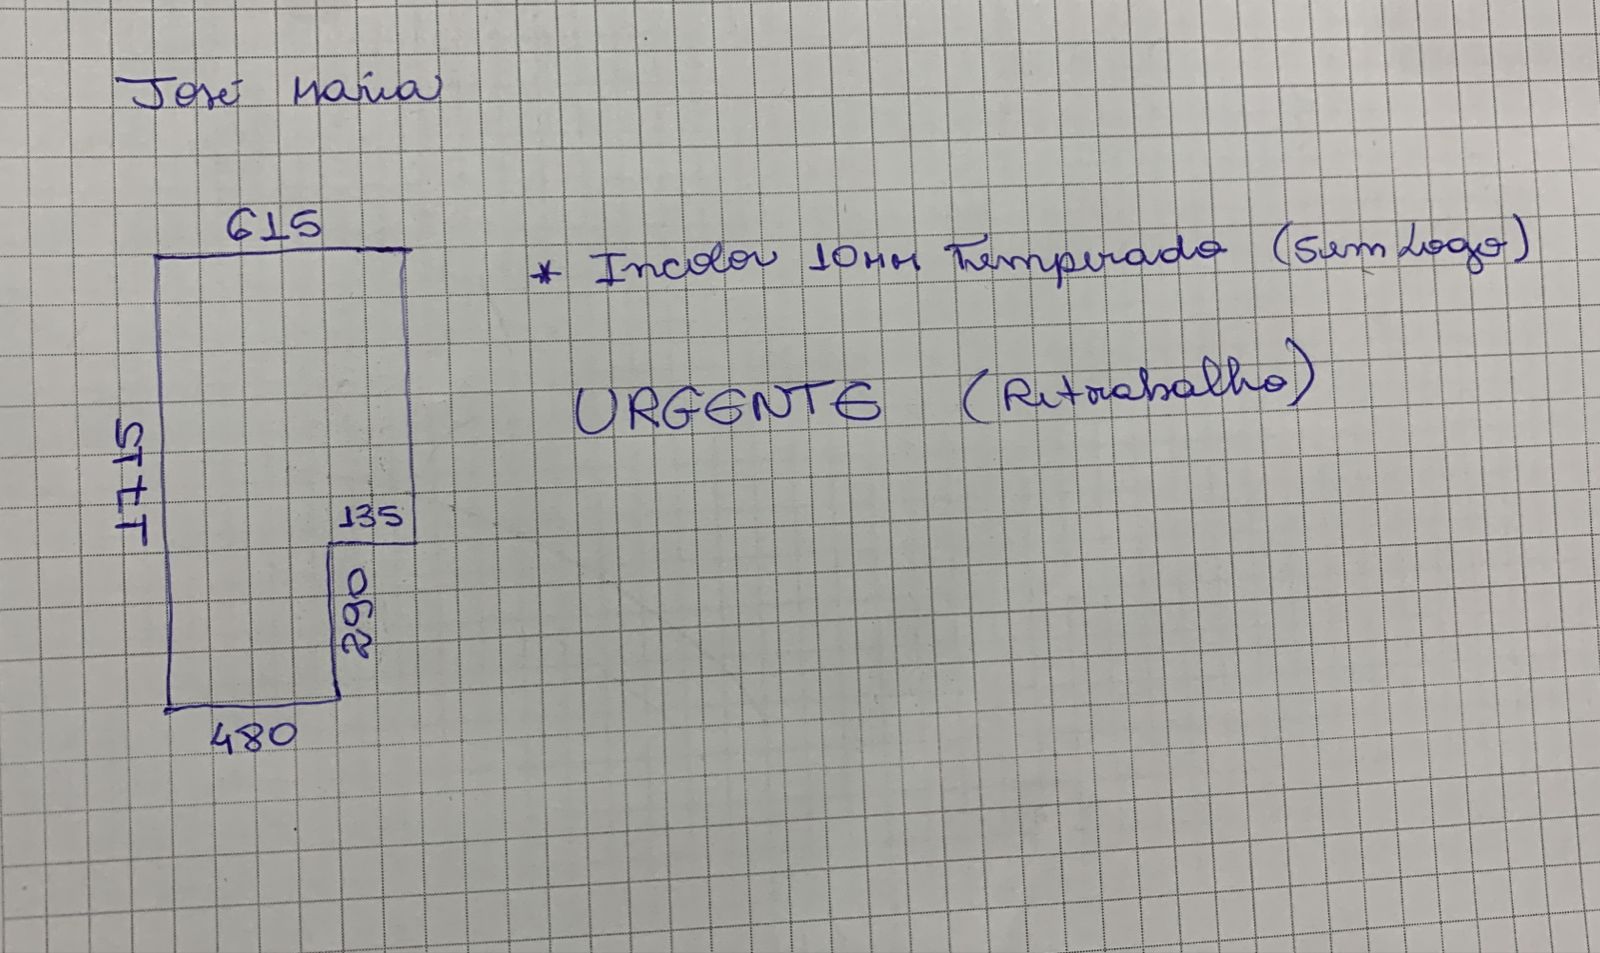 José Maria
615
* Incolor 10mm Temperado (Sem Logo)
URGENTE (Retrabalho)
135
290
480